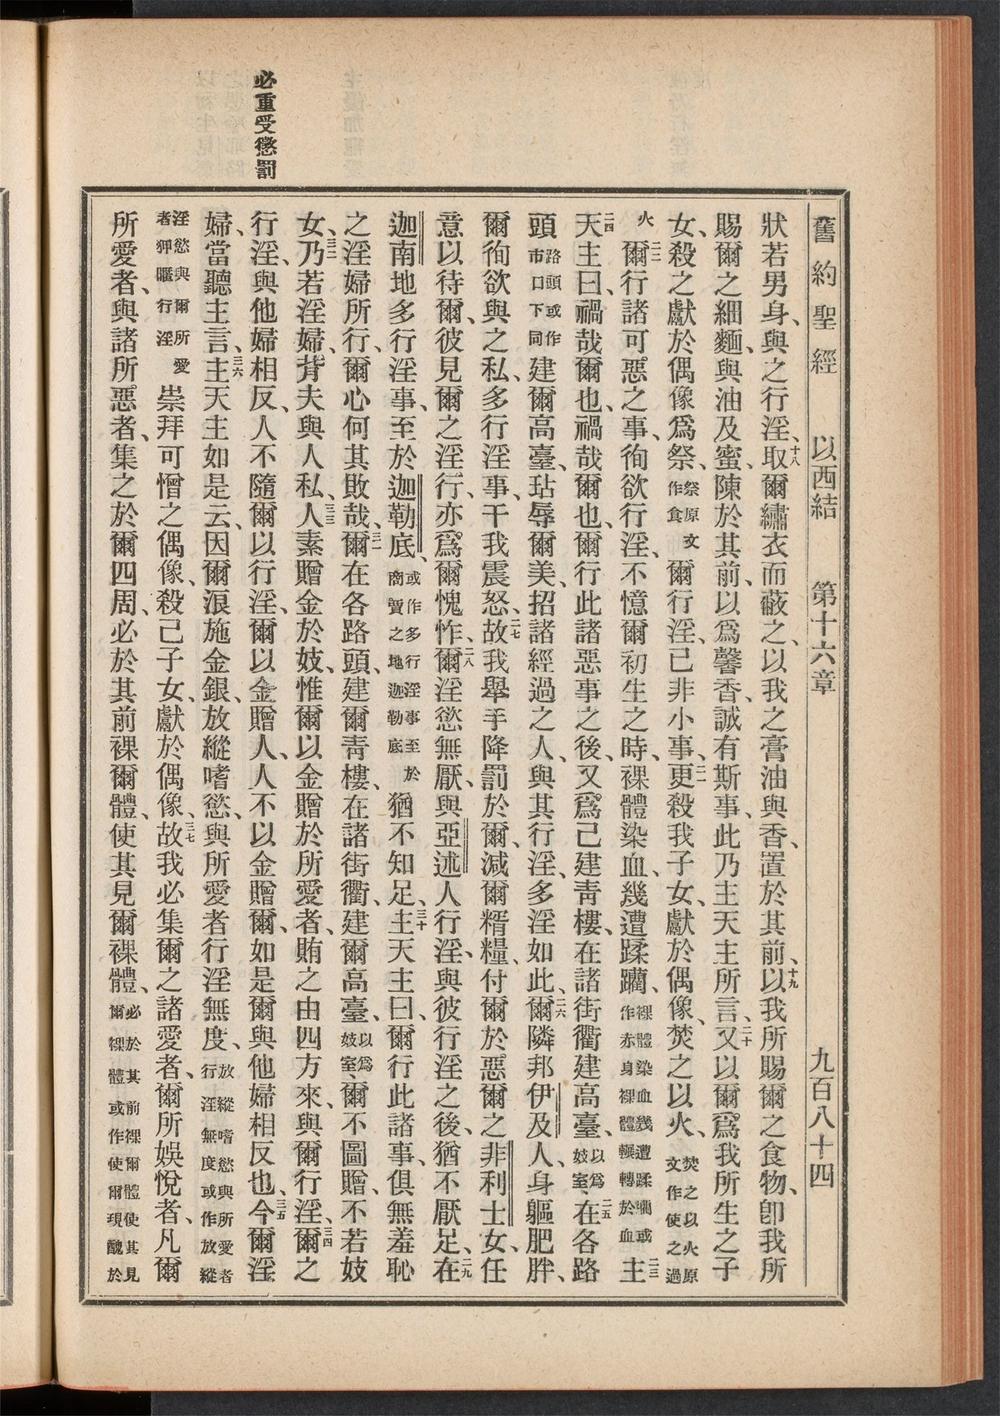 舊約聖經　以西結　第十六章　九百八十四
狀若男身、與之行淫、十八取爾繡衣而蔽之、以我之膏油與香、置於其前、十九以我所賜爾之食物、卽我所
賜爾之細麵、與油及蜜、陳於其前、以爲馨香、誠有斯事、此乃主天主所言、二十又以爾爲我所生之子
女、殺之獻於偶像爲祭、祭原文作食爾行淫、已非小事、二一更殺我子女、獻於偶像、焚之以火、焚之以火原文作使之過
火二二爾行諸可惡之事、徇欲行淫、不憶爾初生之時、裸體染血、幾遭蹂躪、裸體染血幾遭蹂躪或作赤身裸體輾轉於血二三主
二四天主曰、禍哉爾也、禍哉爾也、爾行此諸惡事之後、又爲己建靑樓、在諸街衢建高臺、以爲妓室、二五在各路
頭路頭或作市口下同建爾高臺、玷辱爾美、招諸經過之人、與其行淫、多淫如此、二六爾隣邦伊及人、身軀肥胖、
爾徇欲與之私、多行淫事、干我震怒、二七故我舉手降罰於爾、減爾糈糧、付爾於惡爾之非利士女、任
意以待爾、彼見爾之淫行、亦爲爾愧怍、二八爾淫慾無厭、與亞述人行淫、與彼行淫之後、猶不厭足、二九在
迦南地多行淫事、至於迦勒底、或作多行淫事至於商賈之地迦勒底猶不知足、三十主天主曰、爾行此諸事、俱無羞恥
之淫婦所行、爾心何其敗哉、三一爾在各路頭、建爾靑樓、在諸街衢、建爾高臺、以爲妓室、爾不圖贈、不若妓
女、三二乃若淫婦、背夫與人私、三三人素贈金於妓、惟爾以金贈於所愛者、賄之由四方來、與爾行淫、三四爾之
行淫、與他婦相反、人不隨爾以行淫、爾以金贈人、人不以金贈爾、如是爾與他婦相反也、三五今爾淫
婦、當聽主言、三六主天主如是云、因爾浪施金銀、放縱嗜慾、與所愛者行淫無度、放縱嗜慾與所愛者行淫無度或作放縱
淫慾與爾所愛者狎暱行淫崇拜可憎之偶像、殺己子女、獻於偶像、三七故我必集爾之諸愛者、爾所娛悅者、凡爾
所愛者、與諸所惡者、集之於爾四周、必於其前裸爾體、使其見爾裸體、必於其前裸爾體使其見爾裸體或作使爾現醜於
必重受懲罰